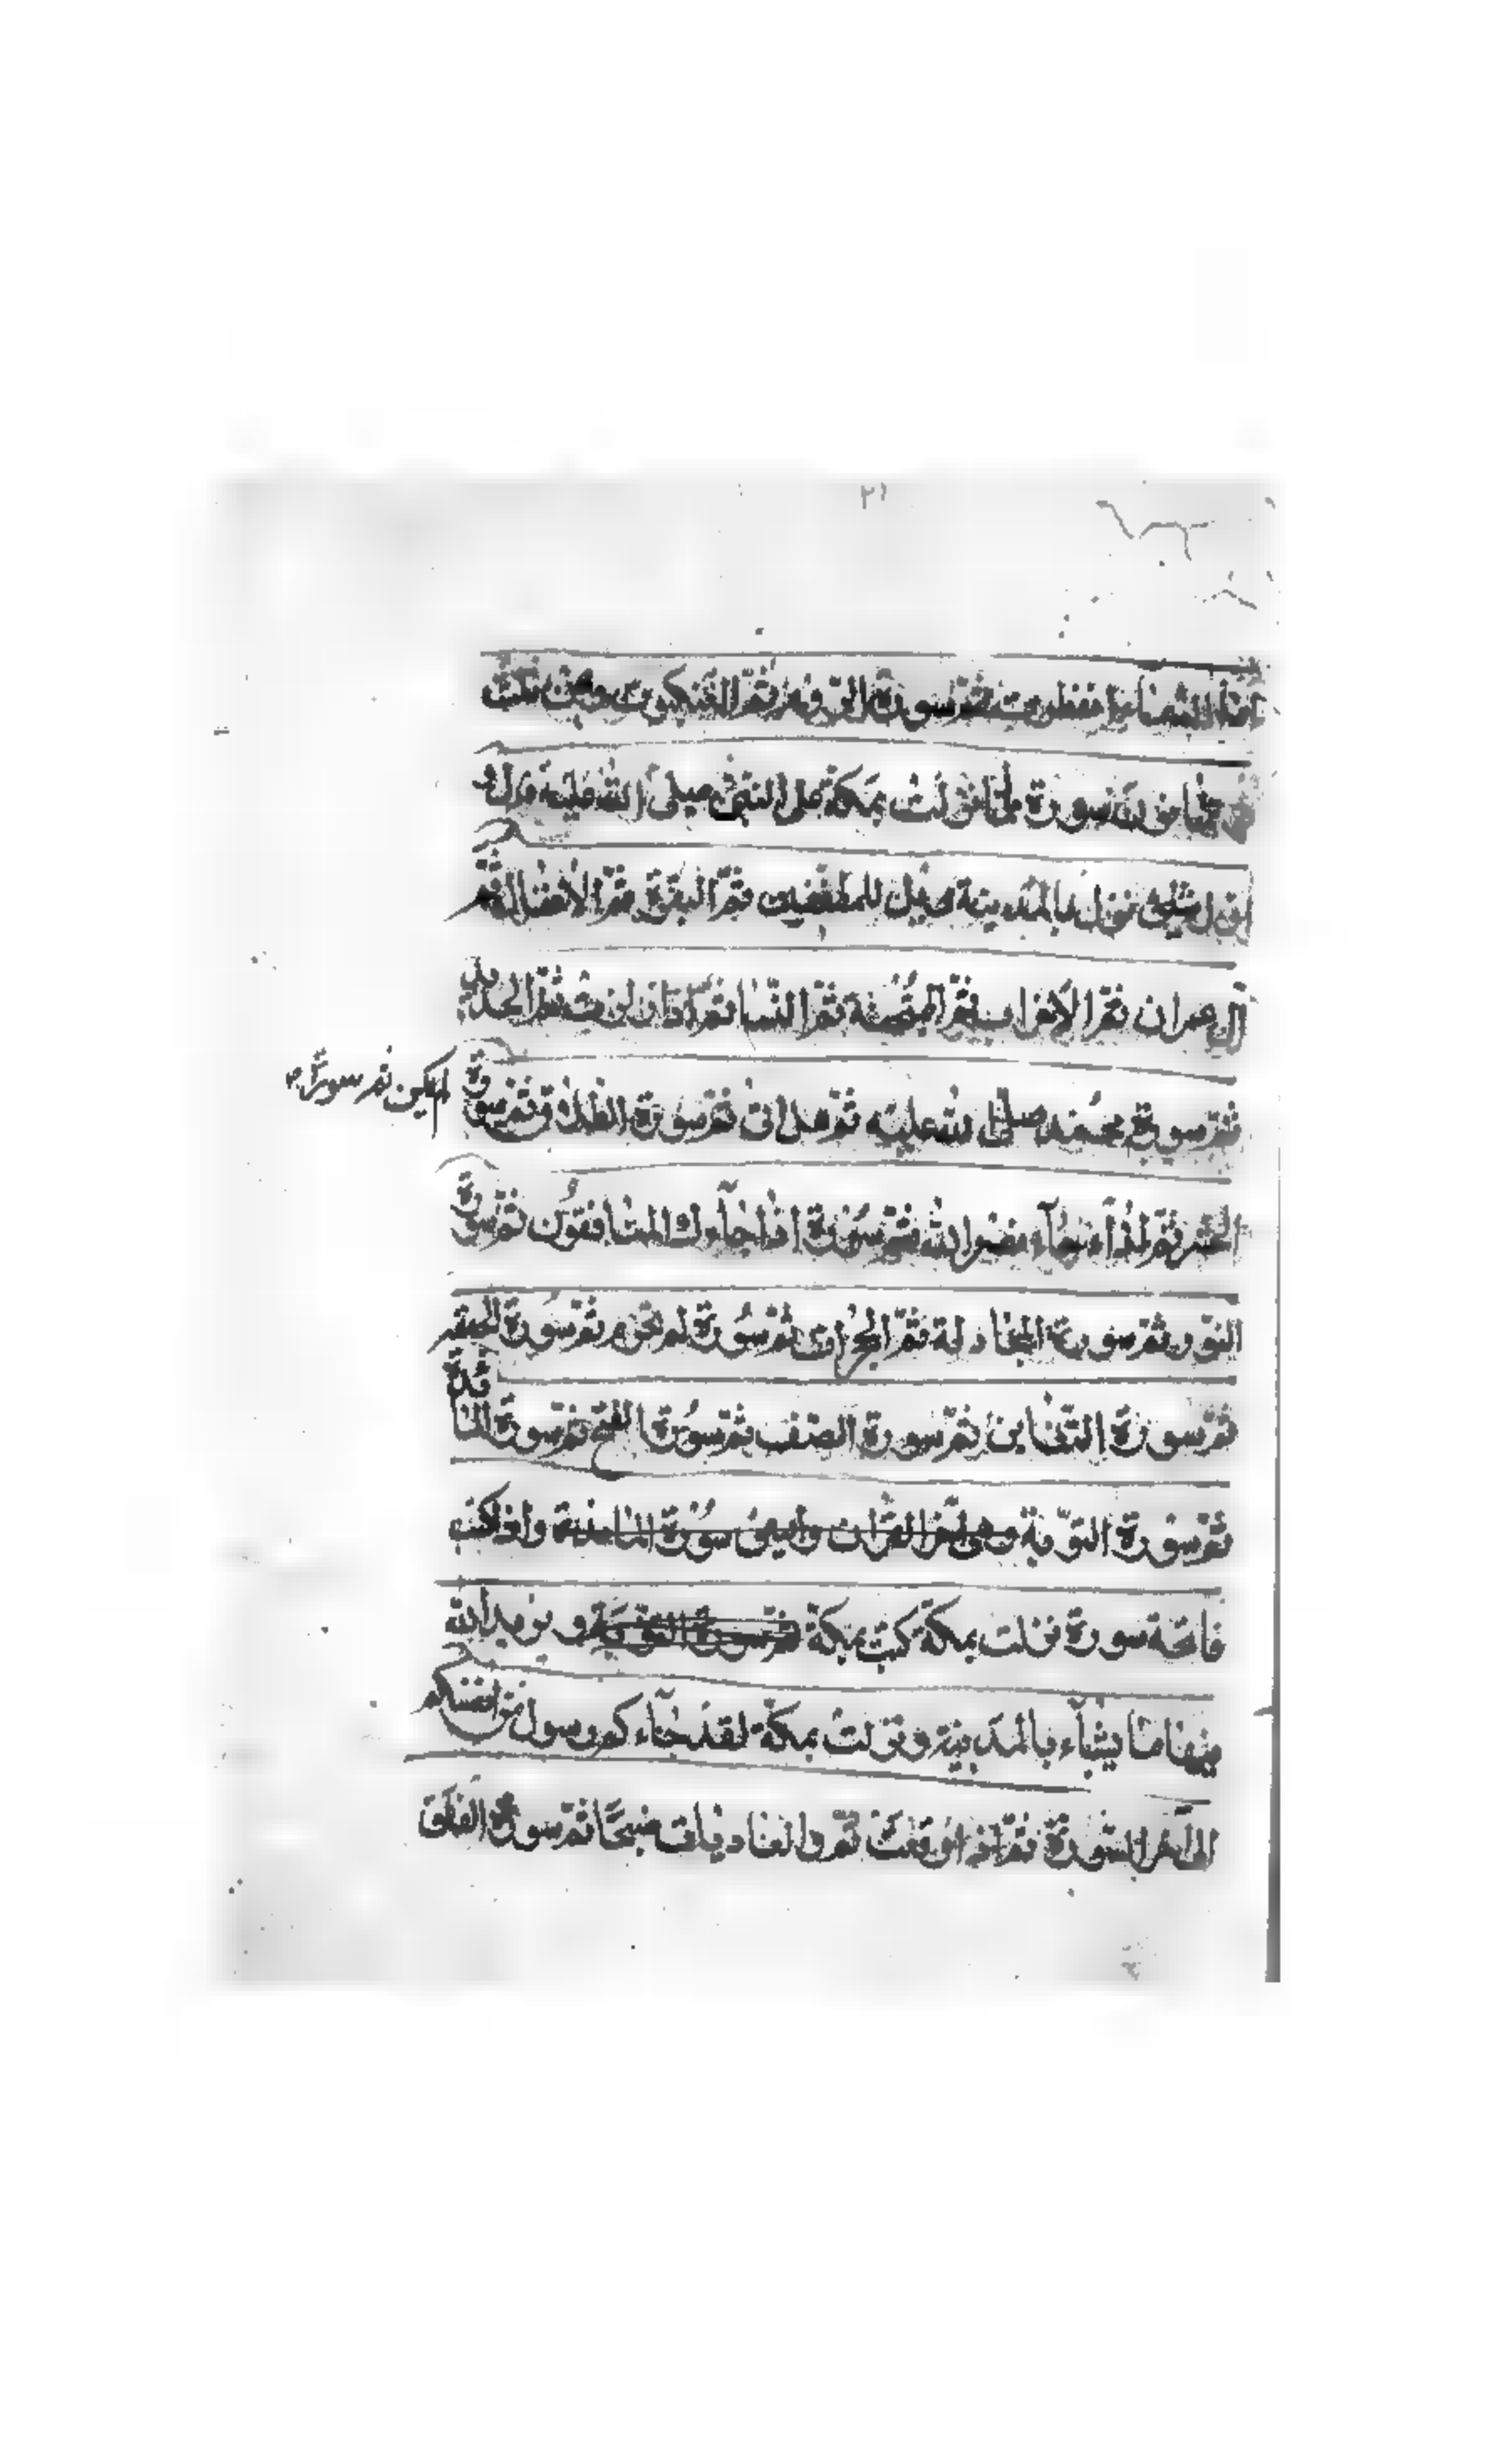 ٢١
اذا السماء انفطرت ثم سورة الروم ثم العنكبوت
سورة نزلت بمكة على النبي صلى الله عليه
اول شيء نزل بالمدينة ويل للمطففين ثم البقرة ثم الانفال ثم
آل عمران ثم الاحزاب ثم الممتحنة ثم النسا ثم اذا زلزلت ثم الحديد
ثم سورة محمد صلى الله عليه ثم هل اتى ثم سورة الطلاق ثم سورة
لم يكن ثم سورة
الحشر ثم اذا جاء نصر الله ثم سورة اذا جاءك المنافقون ثم سورة
النور ثم سورة المجادلة ثم الحجرات ثم سورة لم تحرم ثم سورة
ثم سورة التغابن ثم سورة الصف ثم سورة الفتح ثم سورة المائدة
ثم سورة التوبة وهي آخر القرآن سورة المائدة واذا كتب
فاتحة سورة نزلت بمكة كتب بمكة ثم سورة التوبة و يزيد الله
منها ما يشاء بالمدينة و نزلت بمكة لقد جاءكم رسول من انفسكم
الى آخر السورة ثم اذا وقعت ثم والعاديات ضبحا ثم سورة الفلق